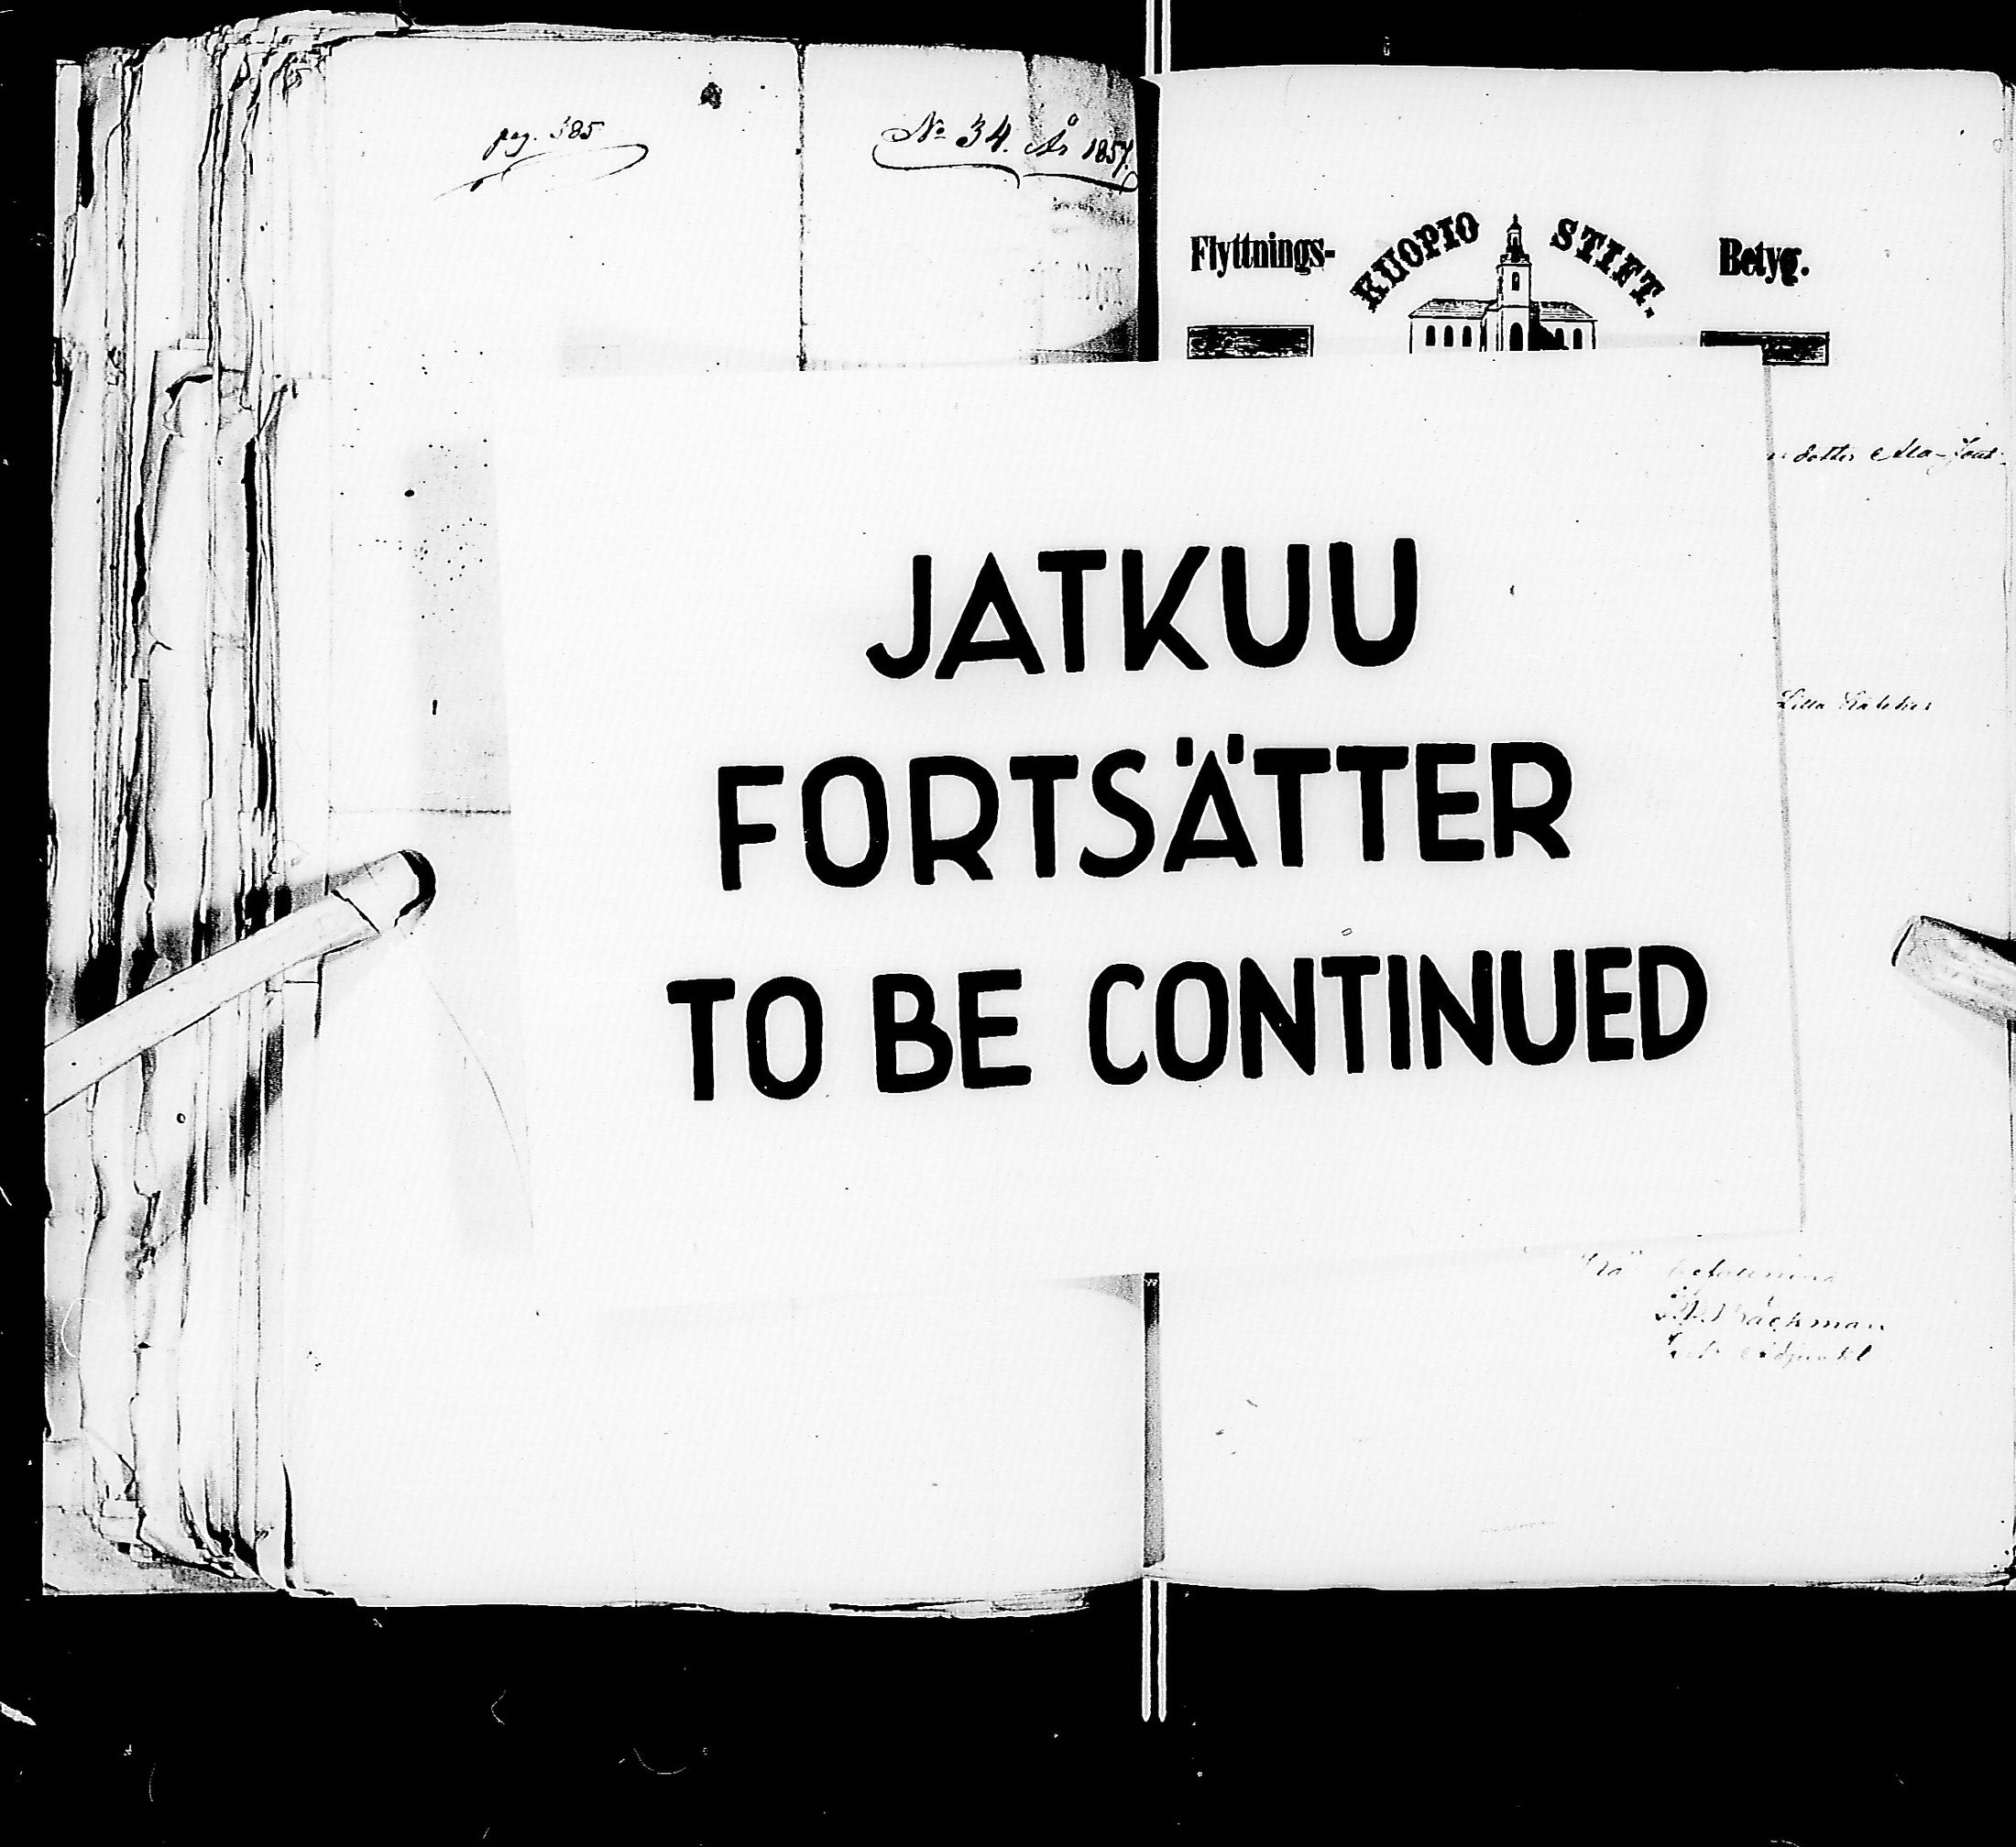 pag. 385
No 34. År 1857.
Flyttnings- KUOPIO STIFT. Betyg.
dotter
JATKUU
FORTSÄTTER
TO BE CONTINUED
Lilla
Backman
Adjunkt